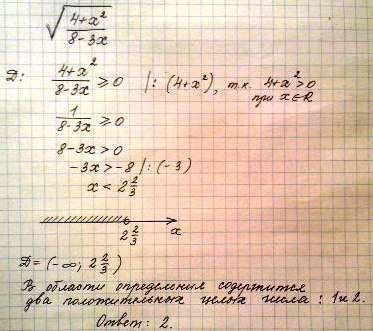 √((4+x²)/(8-3x))
D: (4+x²)/(8-3x) ≥ 0 |: (4+x²), т.к. 4+x²>0
при x∈R
1/(8-3x) ≥ 0
8-3x > 0
-3x > -8 |: (-3)
x < 2 2/3
2 2/3 x
D = (-∞; 2 2/3)
В области определения содержится
два положительных целых числа: 1 и 2.
Ответ: 2.